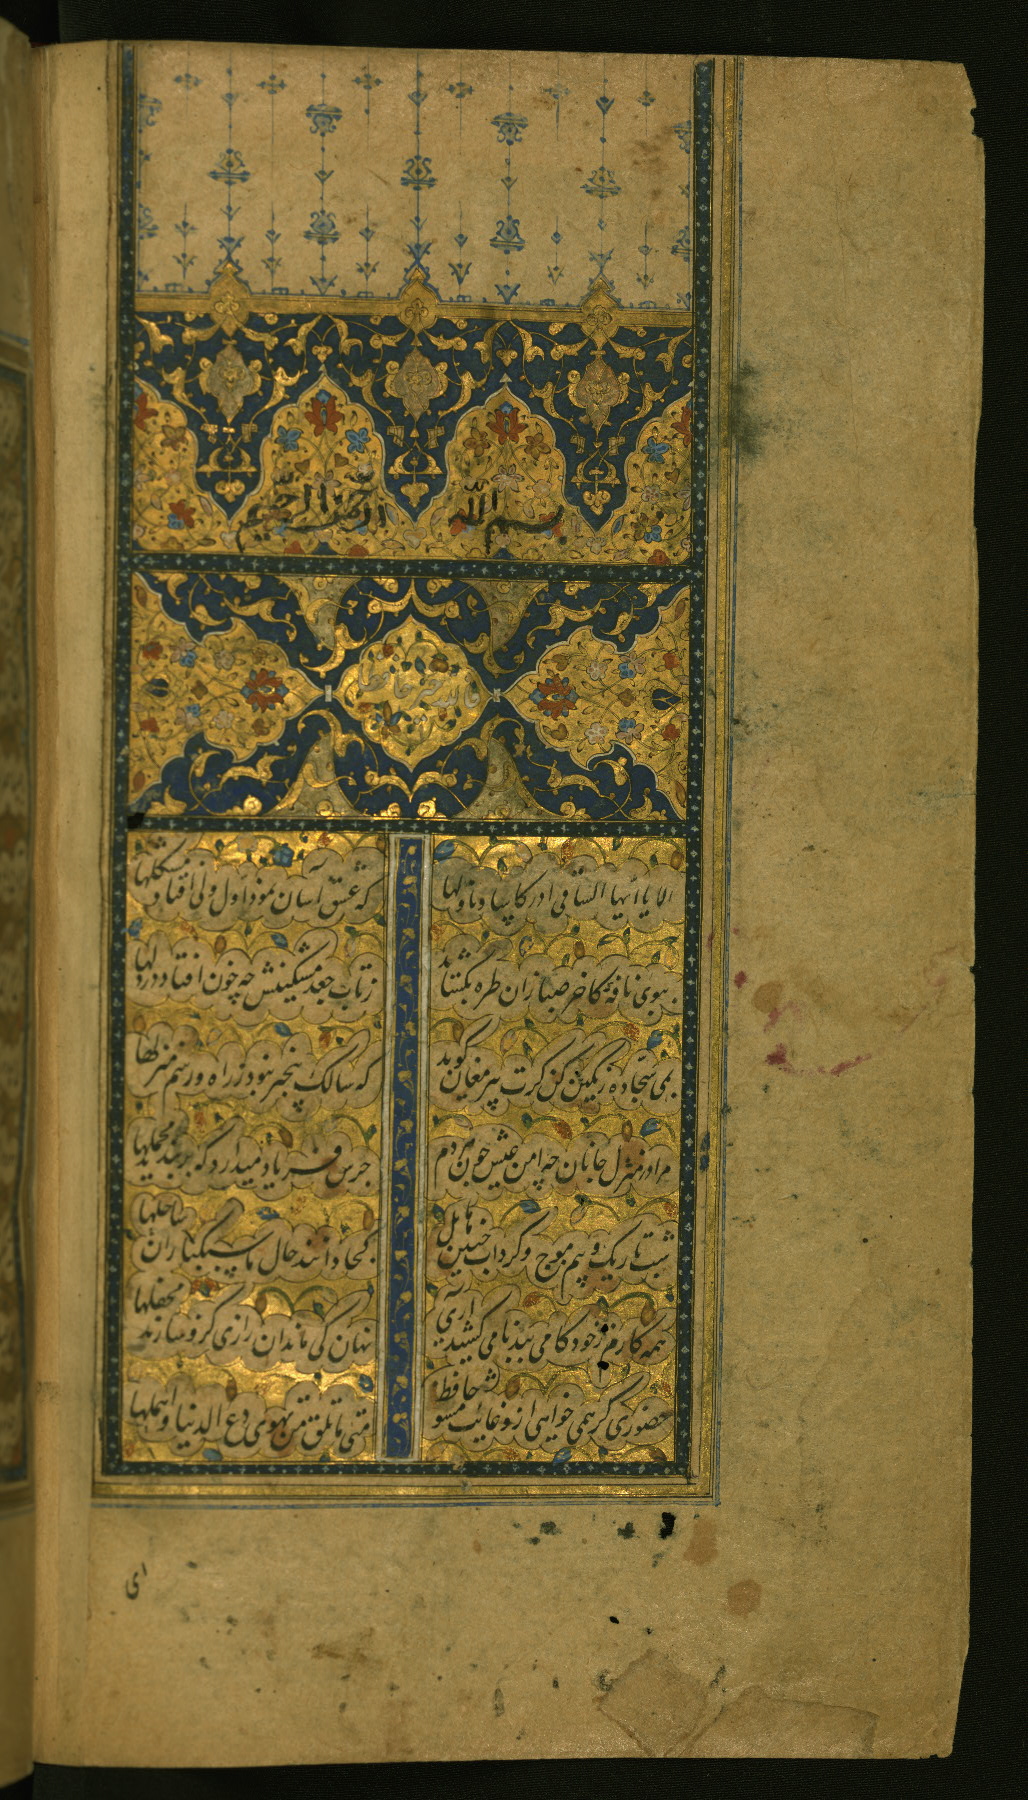 بسم الله الرحمن الرحیم
حافظ
الا یا ایها الساقی ادر کاسا وناولها که عشق آسان نمود اول ولی افتاد مشکلها
ببوی نافه کاخر صبا زان طره بگشاید ز تاب جعد مشکینش چه خون افتاد در دلها
بمی سجاده رنگین کن گرت پیر مغان گوید که سالک بیخبر نبود ز راه و رسم منزلها
مرا در منزل جانان چه امن عیش چون هر دم جرس فریاد میدارد که بربندید محملها
شب تاریک و بیم موج و گرداب چنین هایل کجا دانند حال ما سبکباران ساحلها
همه کارم ز خود کامی ببدنامی کشید آری نهان کی ماند ان رازی کزو سازند محفلها
حضوری گر همی خواهی ازو غایب مشو حافظ متی ما تلق من تهوی دع الدنیا و اهملها
ای